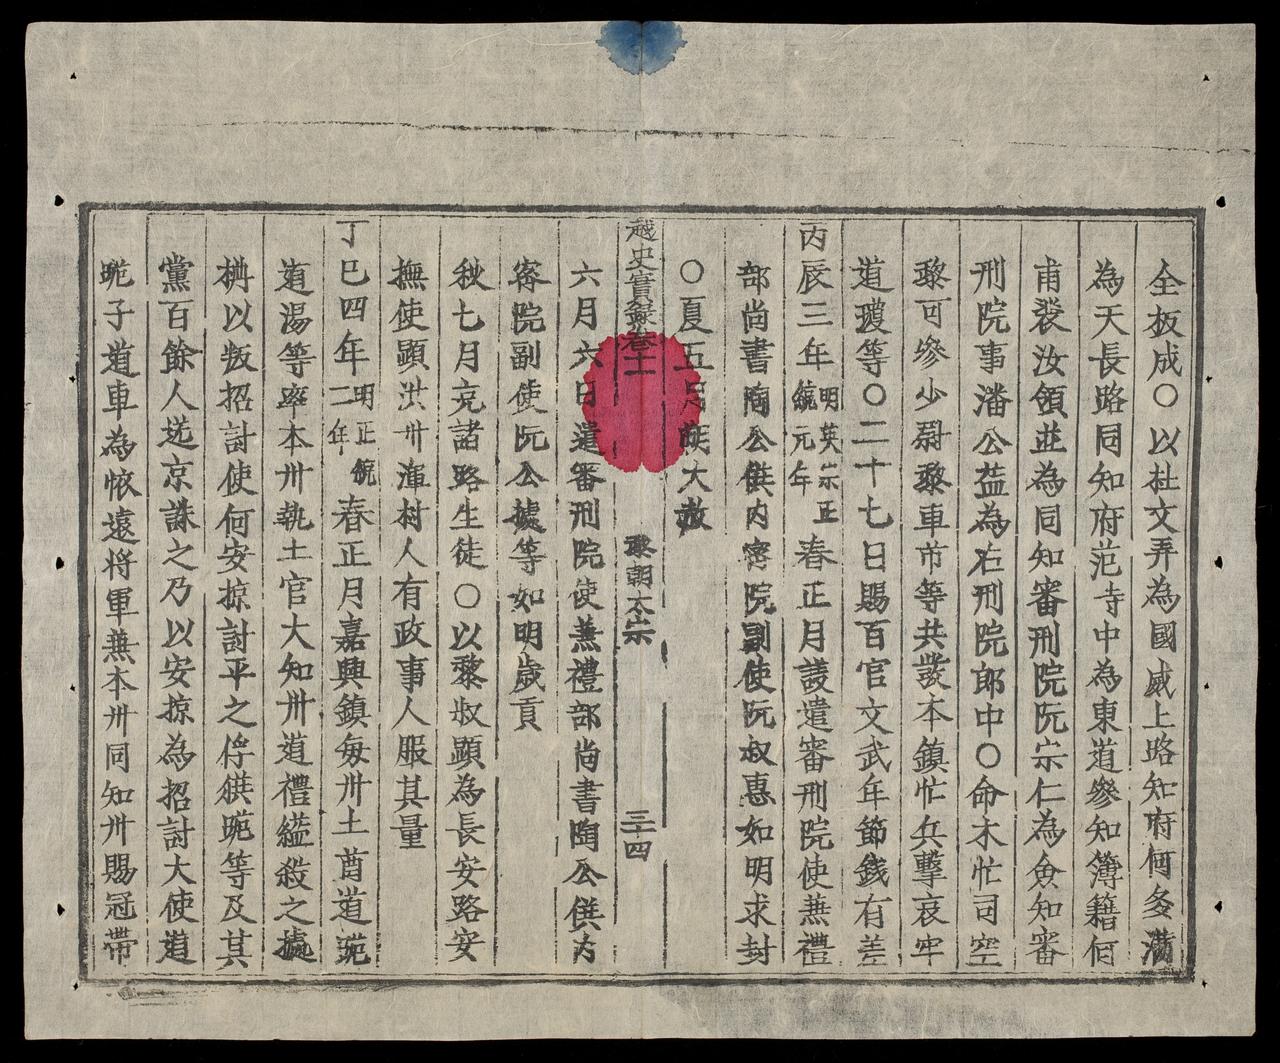 全板成〇以杜文弄為國威上路知府何多滿
為天長路同知府范寺中為東道參知簿籍何
甫裴汝領並為同知審刑院阮宗仁為僉知審
刑院事潘公益為右刑院郎中〇命木忙司空
黎可參少尉黎車芇等共發本鎮忙兵擊哀牢
道瓊等〇二十七日賜百官文武年節錢有差
丙辰三年明英宗正統元年春正月議遣審刑院使兼禮
部尚書陶公僎內密院副使阮叔惠如明求封
〇夏五月大赦
越史實錄卷十一 黎朝太宗 三十四
六月六日遣審刑院使兼禮部尚書陶公僎內
密院副使阮公據等如明歲貢
秋七月充諸路生徒〇以黎叔顯為長安路安
撫使顯洪州渾村人有政事人服其量
丁巳四年明正統二年春正月嘉興鎮每州土酋道
道湯等率本州執土官大知州道禮縊殺之據
以叛招討使何安掠討平之俘等及其
黨百餘人送京誅之乃以安掠為招討大使道
子道車為懷遠將軍兼本州同知州賜冠帶